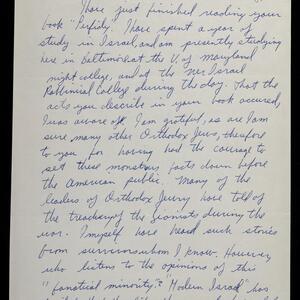 I have just finished reading your
book "Perfidy". I have spent a year of
study in Israel, and am presently studying
here in Baltimore at the U. of Maryland
night college, and at the Ner Israel
Rabbinical College during the day. That the
acts you describe in your book occured,
I was aware of. I am grateful, as are I am
sure many other Orthodox Jews, therefore
to you for having had the courage to
set these monstrous facts down before
the American public. Many of the
leaders of Orthodox Jewry have told of
the treachery of the Zionists during the
war. I myself have heard such stories
from survivors whom I know. However
who listens to the opinions of this
"fanatical minority"? Modern Israel has